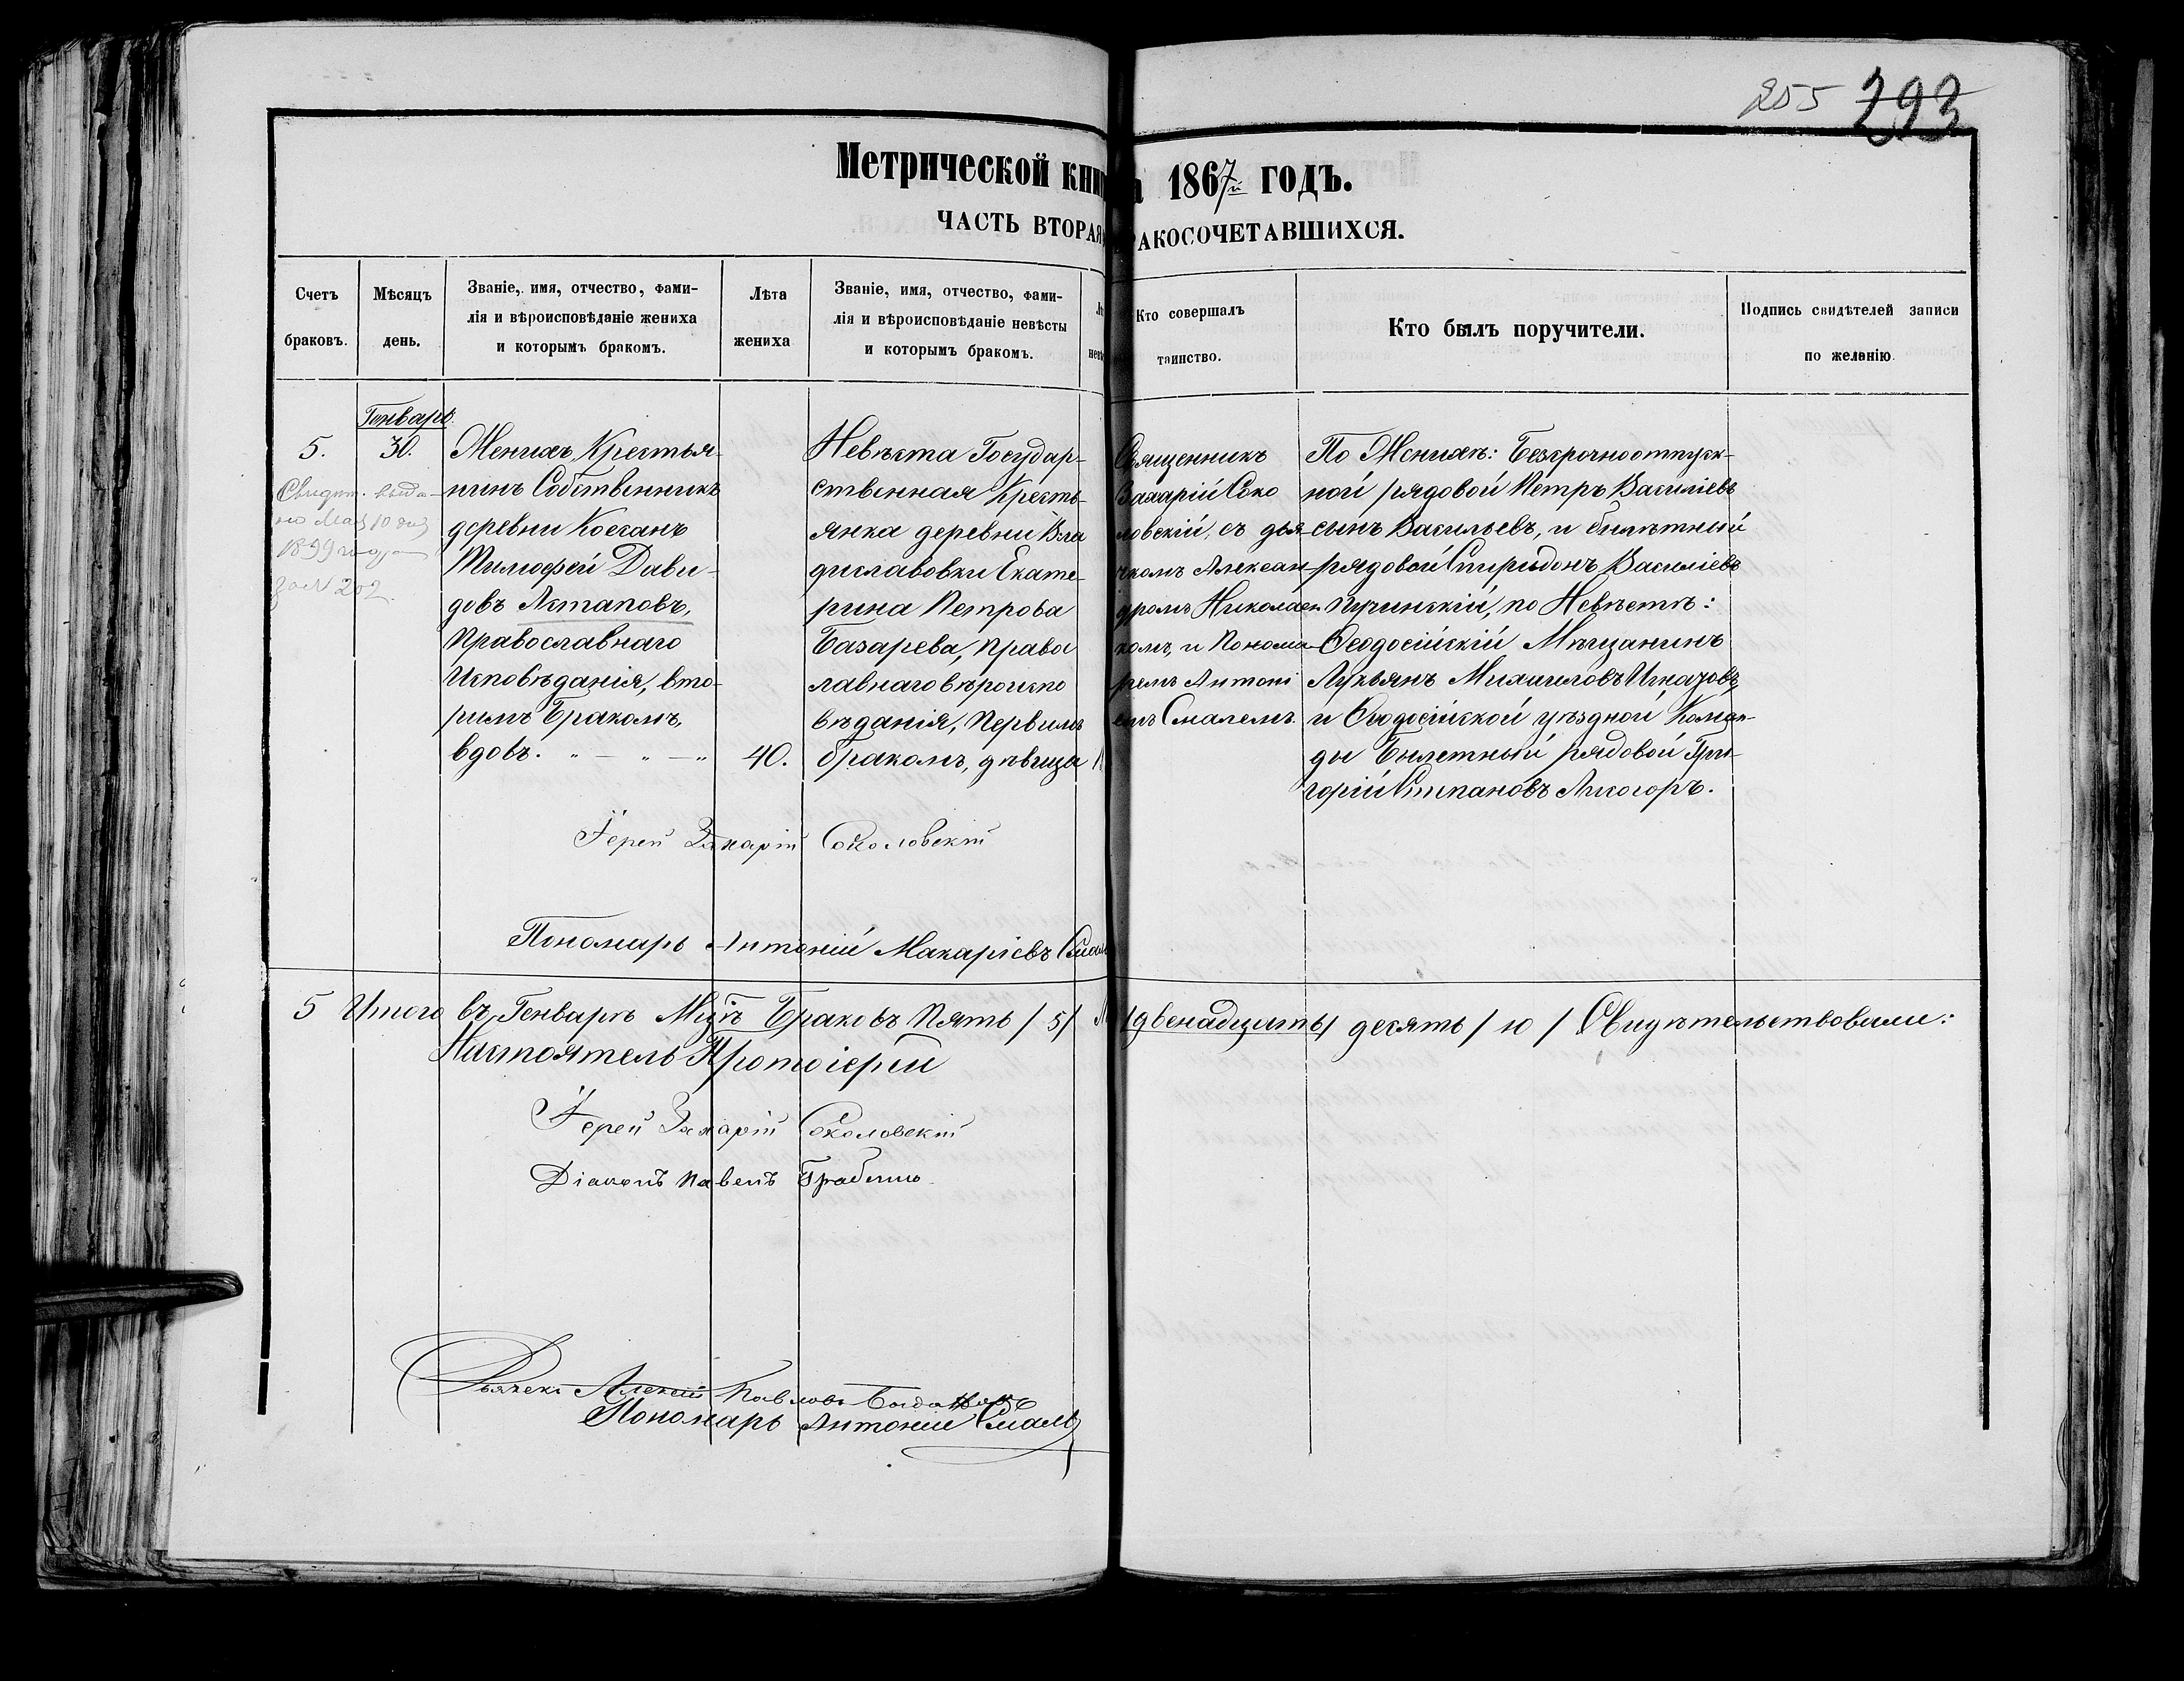 255 293
Метрической кни 1867й годъ.
ЧАСТЬ ВТОРАЯ АКОСОЧЕТАВШИХСЯ.
Счетъ браковъ.
Мѣсяцъ день.
Званіе, имя, отчество, фами-
лія и вѣроисповѣданіе жениха
и которымъ бракомъ.
Лѣта
жениха
Званіе, имя, отчество, фами-
лія и вѣроисповѣданіе невѣсты
и которымъ бракомъ.
Кто совершалъ
таинство.
Кто былъ поручители.
Подпись свидѣтелей записи
по желанію.
Генварь.
5.
30.
Свидѣт. выда-
но Мая 10 дня
1899 года
за № 202.
Женихъ, Крестья-
нинъ Собственникъ
деревни Коганъ
Тимофей Дави-
довъ Астаповъ,
Православнаго
Исповѣданія, вто-
рымъ Бракомъ,
вдовъ. " — " — "
40.
Невѣста Государ-
ственная Кресть-
янка деревни Вла
диславовки Екате-
рина Петрова
Базарева, Право
лавнаго вѣроиспо
вѣданія, Первымъ
бракомъ, дѣвица
Священникъ
Захарій Соко
ловскій, съ дья-
чкомъ Алексан-
дромъ Николаен
комъ, и Понома-
ремъ Антоні
емъ Смалемъ.
По Женихѣ: Безсрочноотпуск-
ной рядовой Петръ Василіевъ
сынъ Васильевъ, и билѣтный
рядовой Спиридонъ Василіевъ
Пучинскій, по Невѣстѣ:
Ѳеодосійскій Мѣщанинъ
Лукьянъ Михаиловъ Игнатовъ,
и Ѳеодосійской уѣздной Коман-
ды Билетный рядовой Гри-
горій Степановъ Лисогоръ.
Іерей Захарій Соколовскій
Пономарь Антоній Макаріевъ Смаль
5 Итого въ Генварѣ Мцѣ Браковъ Пять /5/ /двенадцать/ десять /10/ Свидѣтельствовали:
Настоятель Протоіерей
Іерей Захарій Соколовскій
Діаконъ Павелъ
Дьячекъ Алексей Павловъ
Пономарь Антоній Смаль